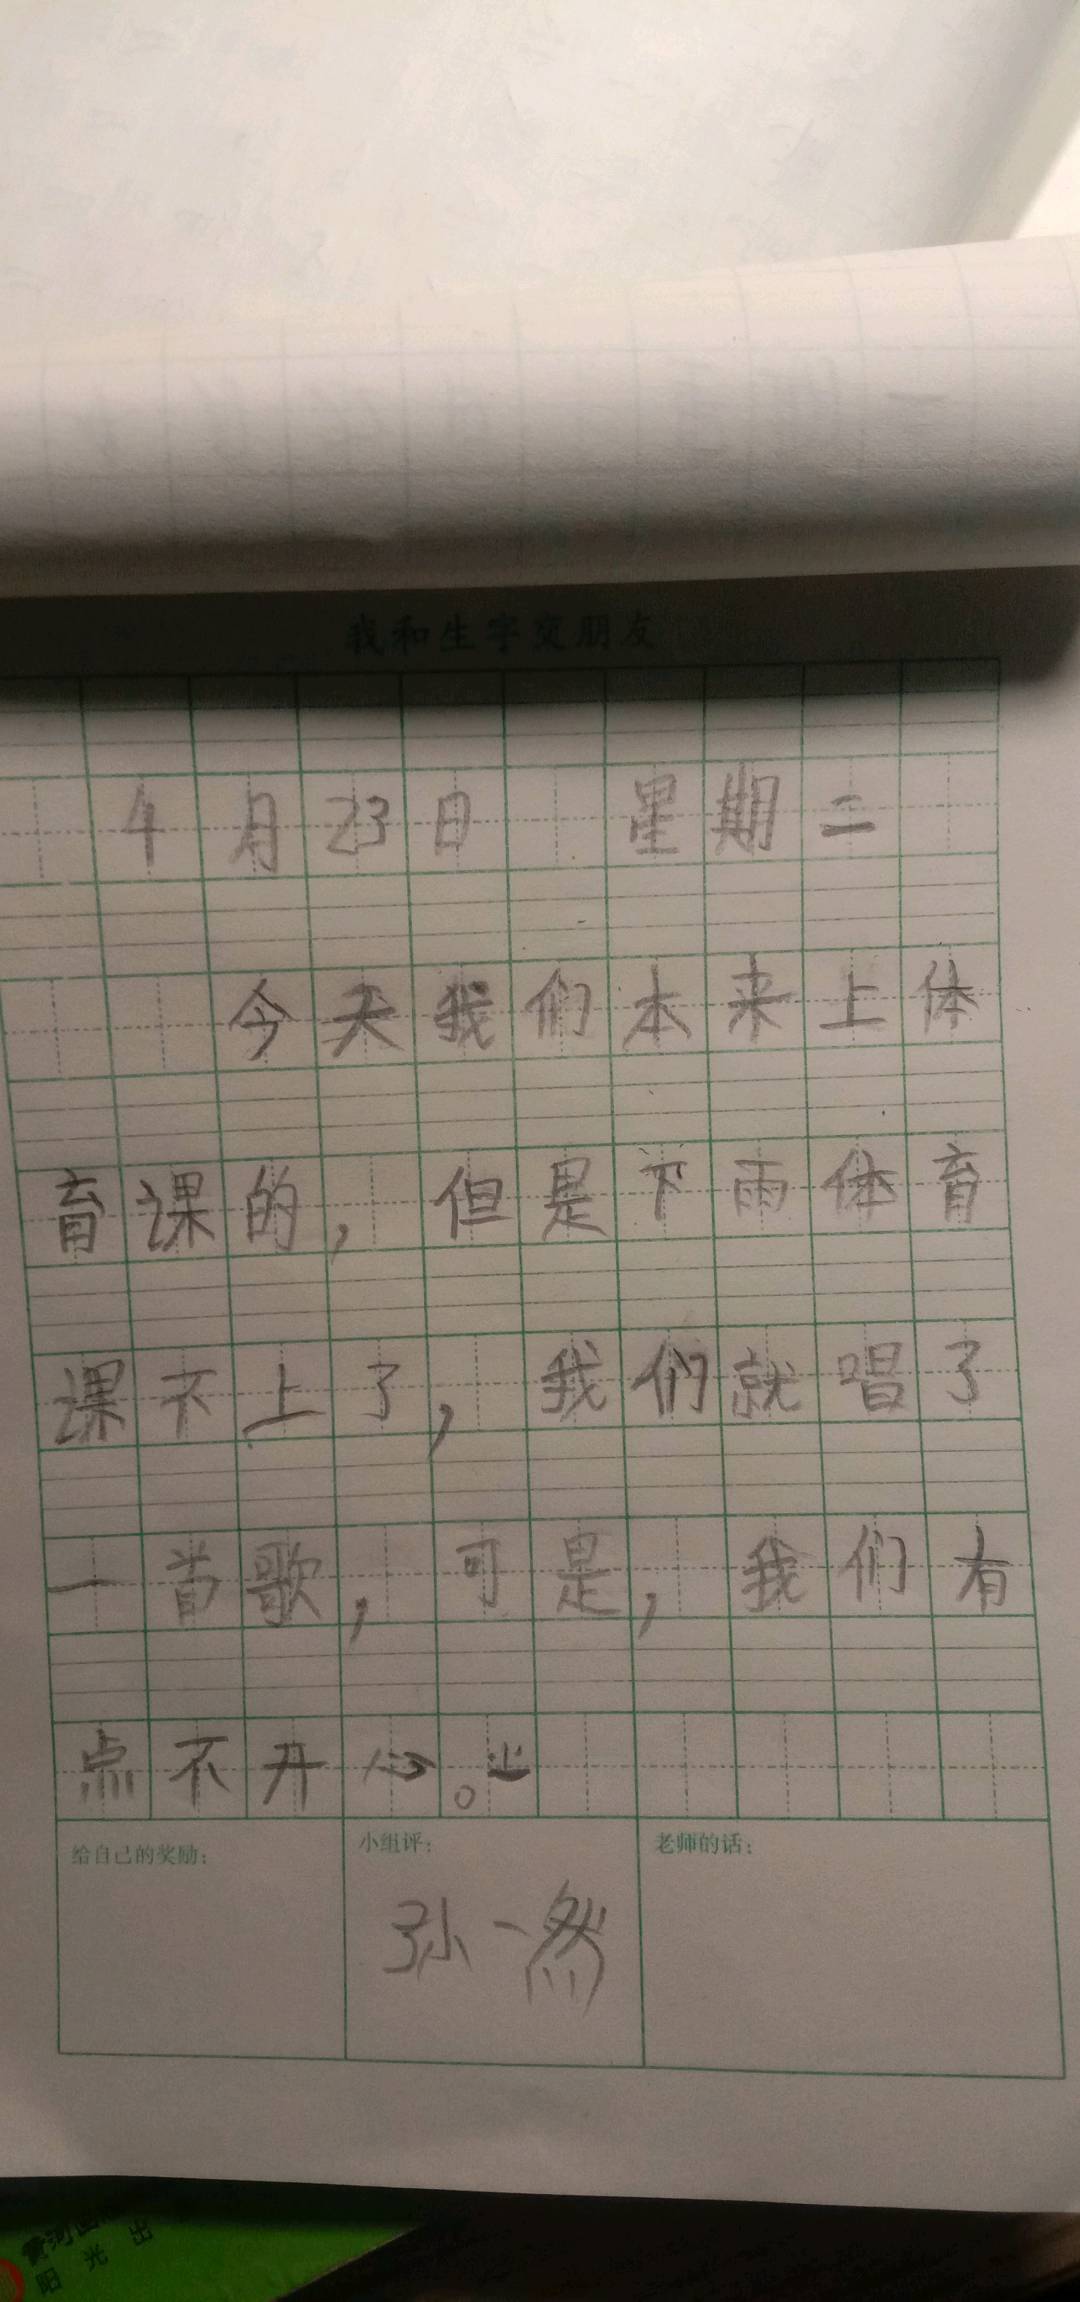 我和生字交朋友
4月23日 星期二
今天我们本来上体
育课的，但是下雨体育
课不上了，我们就唱了
一首歌，可是，我们有
点不开心。
给自己的奖励：
小组评：
老师的话：
孙一然
黄河出
阳光出